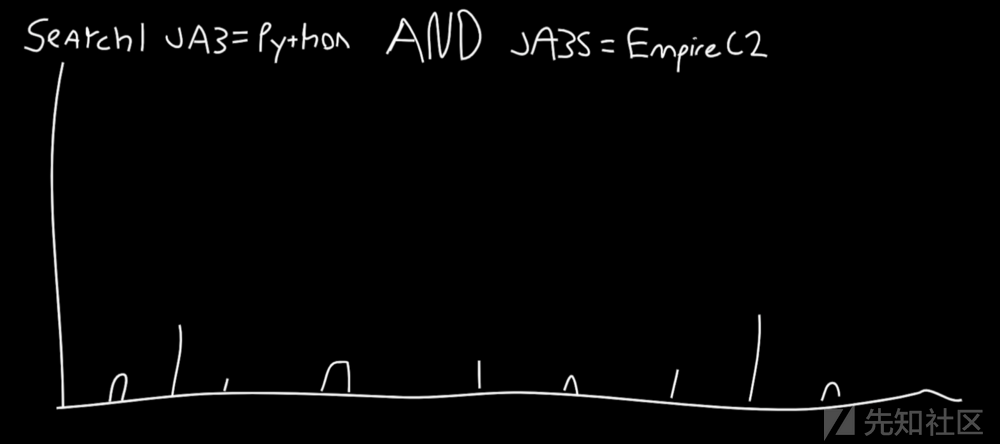 Search| JA3=Python AND JA3S=EmpireC2
先知社区